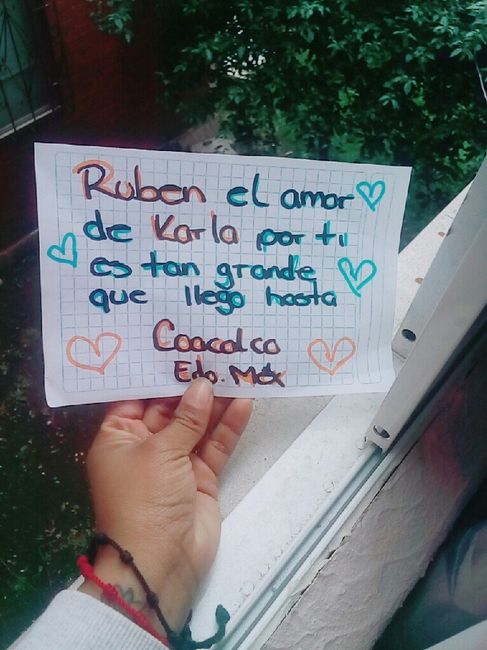 Ruben el amor
de Karla por ti
es tan grande
que llego hasta
Coacalco
Edo. Méx